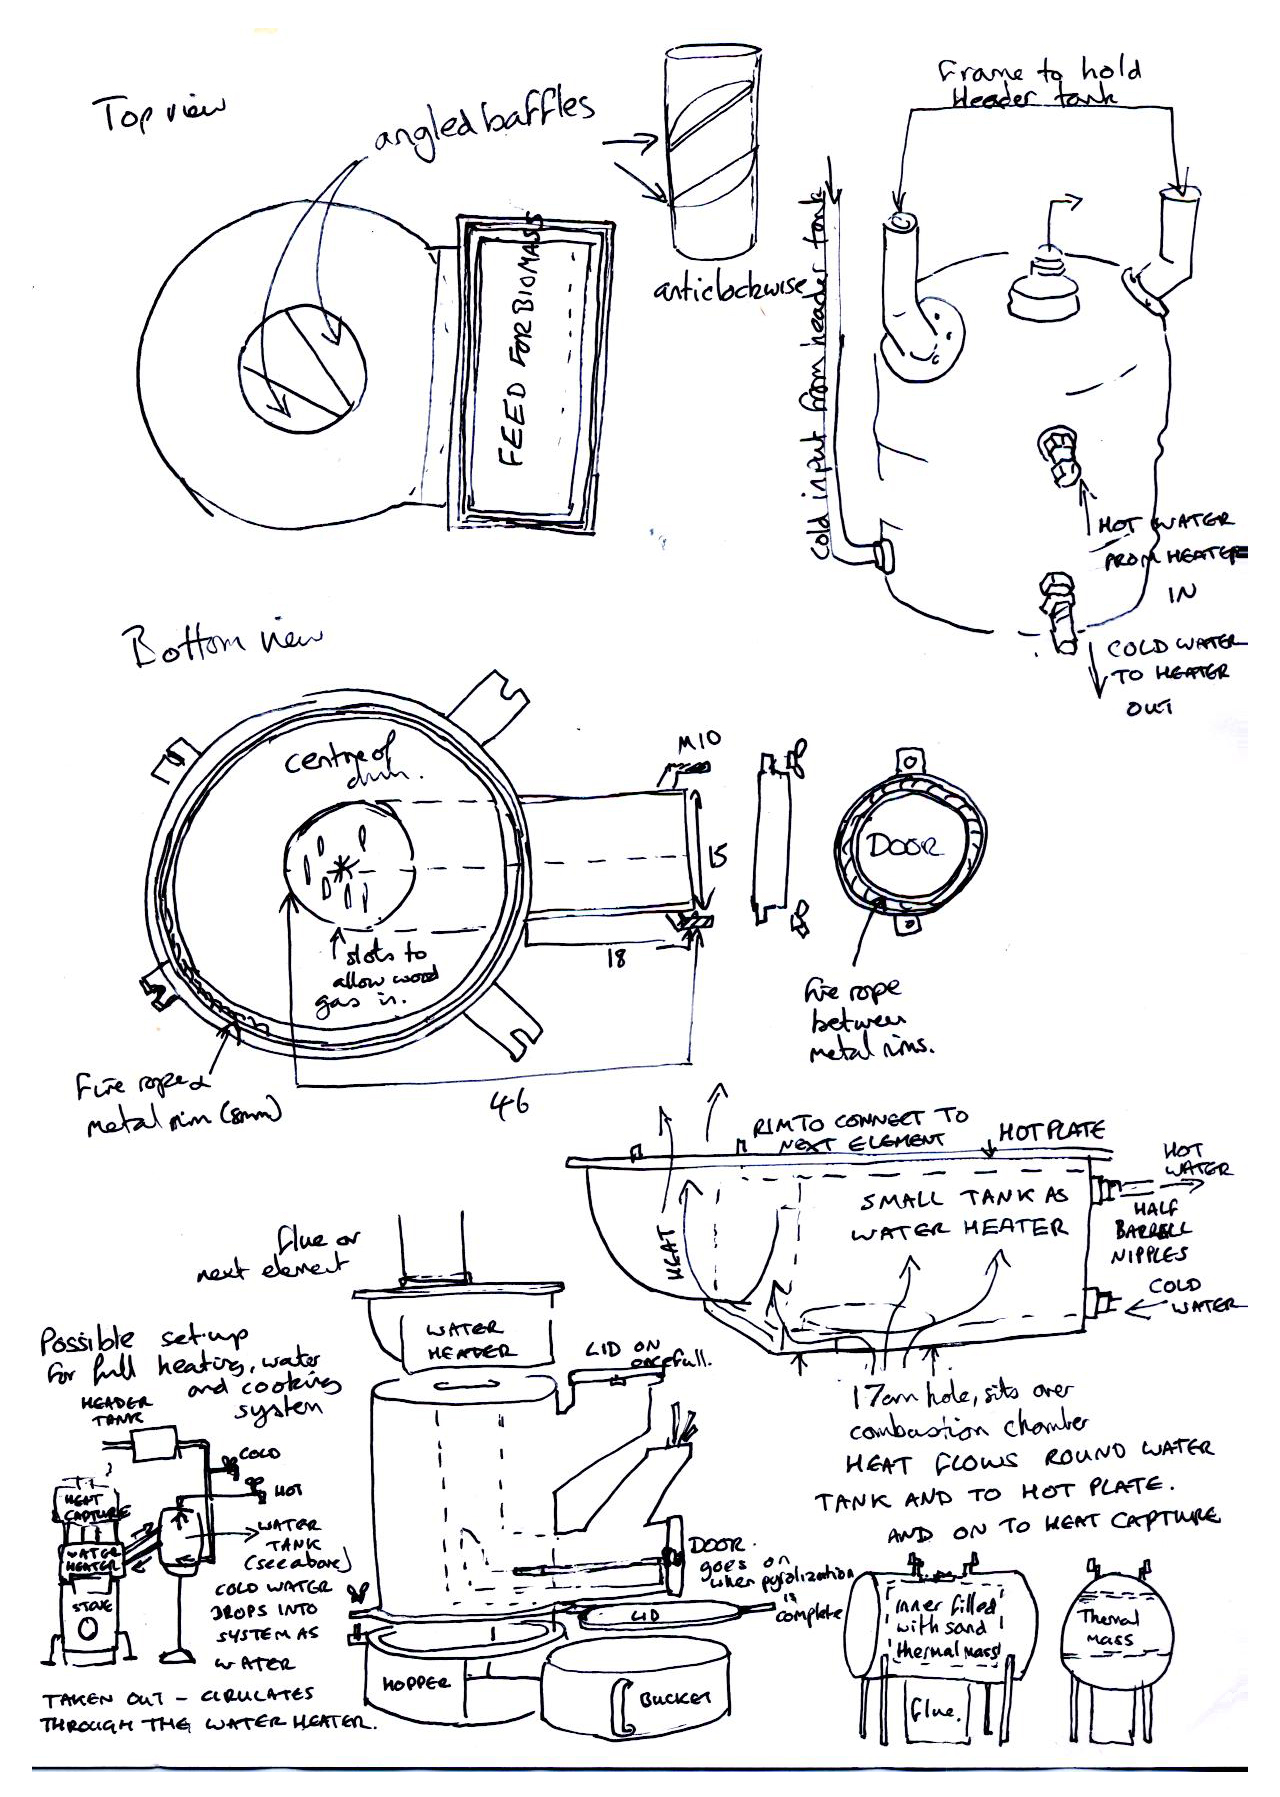 Top view
angled baffles
anticlockwise
FEED FOR BIOMASS
Frame to hold
Header tank
Cold input from header tank
HOT WATER
FROM HEATER
IN
COLD WATER
TO HEATER
OUT
Bottom view
centre of
drum.
slots to
allow wood
gas in.
M10
15
18
46
DOOR
Fire rope
between
metal rims.
Fire rope &
metal rim (8mm)
RIM TO CONNECT TO
NEXT ELEMENT
HOT PLATE
HOT
WATER
SMALL TANK AS
WATER HEATER
HEAT
HALF
BARRELL
NIPPLES
COLD
WATER
17cm hole, sits over
combustion chamber
HEAT FLOWS ROUND WATER
TANK AND TO HOT PLATE.
AND ON TO HEAT CAPTURE
flue or
next element
WATER
HEATER
LID ON
once full.
DOOR.
goes on
when pyralization
is
complete
LID
HOPPER
BUCKET
Possible set-up
for full heating, water
and cooking
system
HEADER
TANK
COLD
HOT
HEAT
CAPTURE
WATER
HEATER
STOVE
WATER
TANK
(see above)
COLD WATER
DROPS INTO
SYSTEM AS
WATER
TAKEN OUT - CIRULATES
THROUGH THE WATER HEATER.
inner filled
with sand
thermal mass
flue.
Thermal
mass